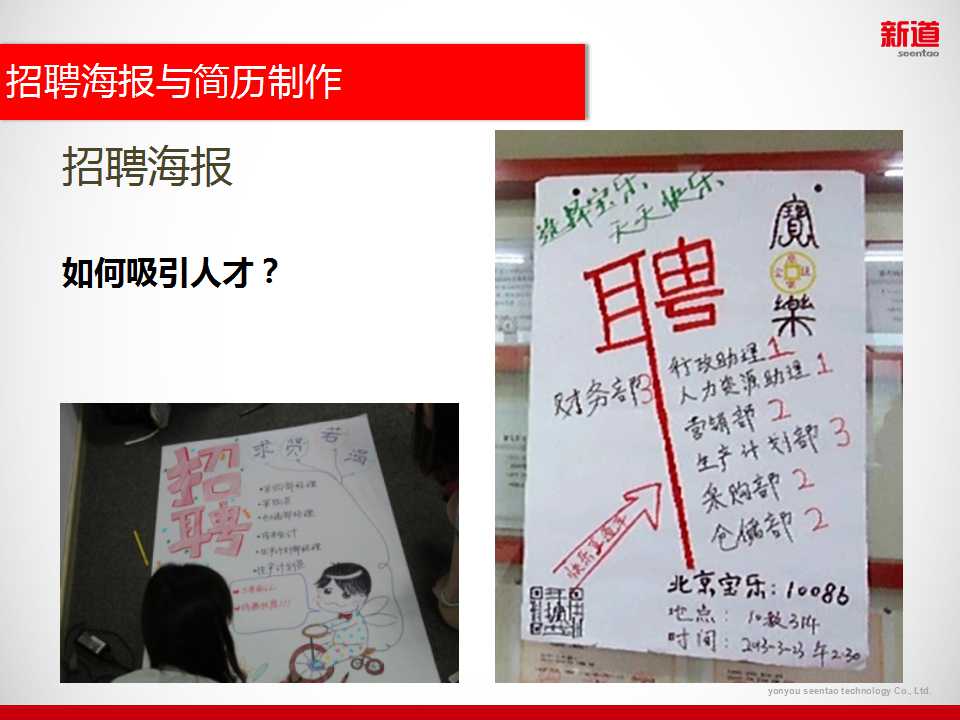 新道
seentao
招聘海报与简历制作
招聘海报
如何吸引人才？
选择宝乐
天天快乐
寶
樂
聘
财务部3
行政助理1
人力资源助理1
营销部2
生产计划部3
采购部2
仓储部2
快乐直通车
北京宝乐：10086
地点：10教314
时间：2013-3-23 午2:30
求贤若渴
招聘
yonyou seentao technology Co., Ltd.